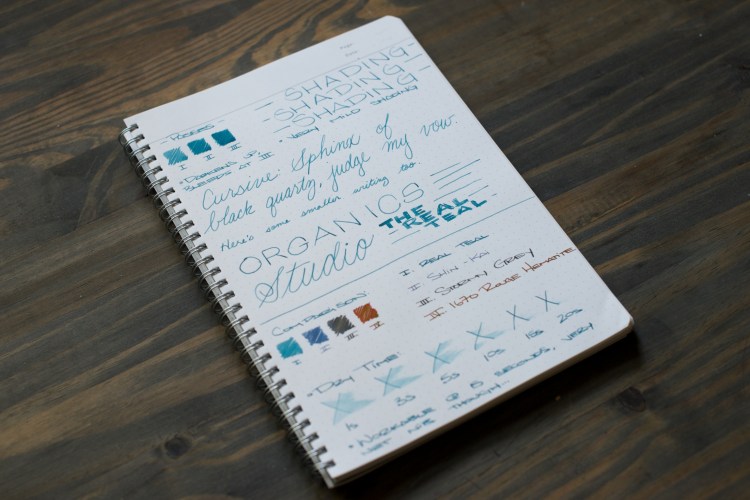 SHADING
SHADING
SHADING
• VERY MILD SHADING
POOLERS
I II III
BLEEDS AT III
Cursive: Sphinx of
black quartz, judge my vow.
Here's some smaller writing too.
ORGANICS
Studio
THE REAL
TEAL
COMPARISON:
I II III IV
I. REAL TEAL
II. SHIN-KAI
III. STORMY GREY
IV. 1670 ROUGE HEMATITE
• DRY TIME:
1s 3s 5s 10s 15s 20s
• WORKABLE @ 5 SECONDS, VERY
THOUGH...